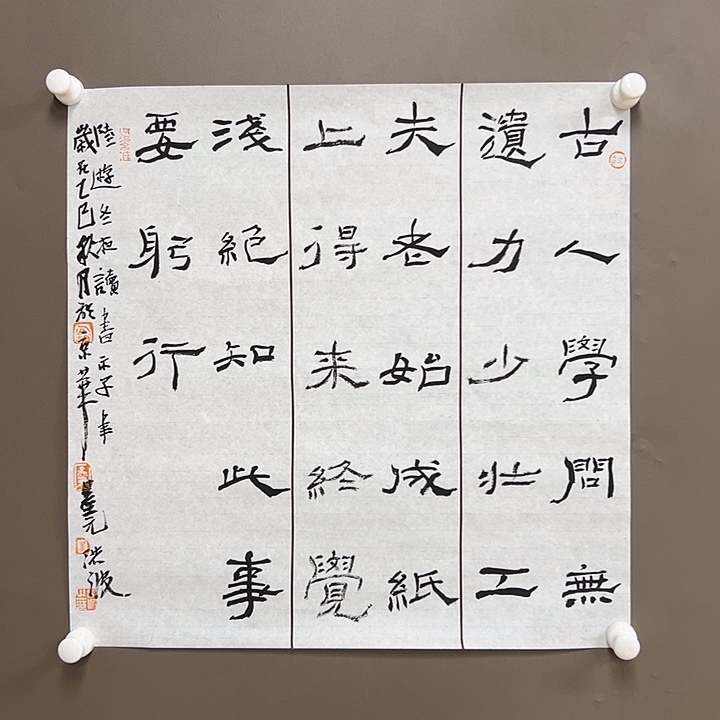 古人學問無
遺力少壯工
夫老始成紙
上得来終覺
淺絕知此事
要躬行
陸游冬夜讀書示子聿
歲在乙巳秋月於京華元洪波